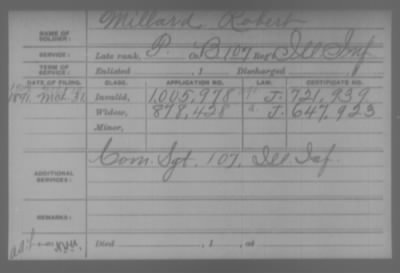 NAME OF SOLDIER: Millard, Robert
SERVICE: Late rank, P. Co. B, 107 Reg't Ill Inf
TERM OF SERVICE: Enlisted , 1 Discharged
DATE OF FILING. CLASS. APPLICATION NO. LAW. CERTIFICATE NO.
1891 Mch. 31 Invalid, 1,005,978 J. 721,939
Widow, 878,428 J. 647,923
Minor,
ADDITIONAL SERVICES: Com. Sgt. 107, Ill Inf.
REMARKS:
Died , 1 , at